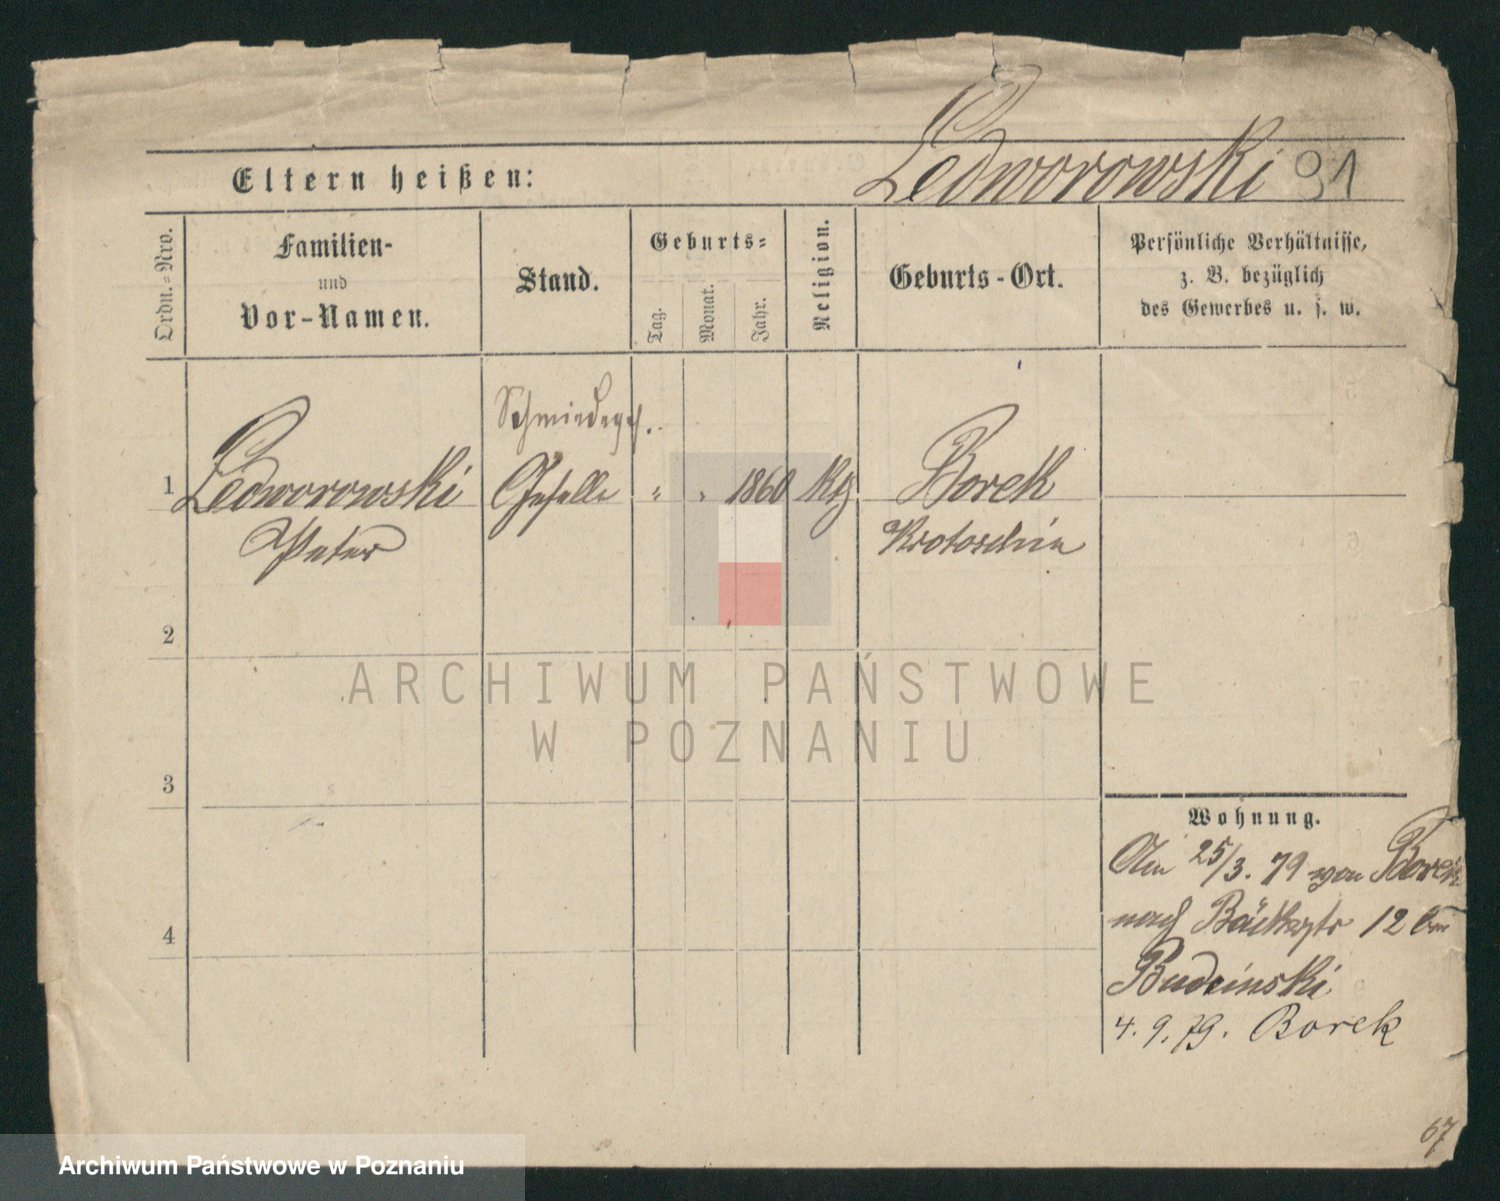 Ledworowski 91
Eltern heißen:
Ordn.-Nro.
Familien-
und
Vor-Namen.
Stand.
Geburts-
Tag.
Monat.
Jahr.
Religion.
Geburts-Ort.
Persönliche Verhältnisse,
z. B. bezüglich
des Gewerbes u. s. w.
Schmiedeges.
1 Ledworowski Geselle " " 1860 Kth Borek
Peter Krotoschin
2
3
4
Wohnung.
Am 25/3. 79 von Borek
nach Bäckerstr 12 bei
Budzinski
4. 9. 79. Borek
67
ARCHIWUM PAŃSTWOWE
W POZNANIU
Archiwum Państwowe w Poznaniu